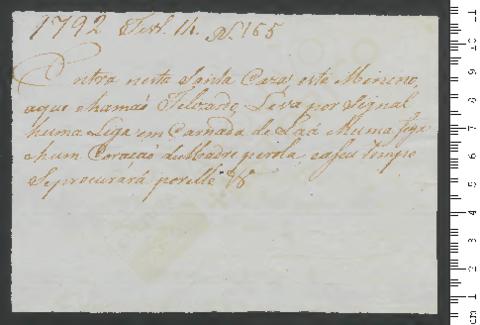 1792 Fevr. 14. N. 165
Entra nesta Santa Caza este Minino,
aque chamaõ Felizardo, Leva por Signal
huma Liga em Carnada de Laã ehuma figa
ehum Coraçaõ de Madre perola, easeu tempo
Seprocurará porelle
cm 1 2 3 4 5 6 7 8 9 10 11